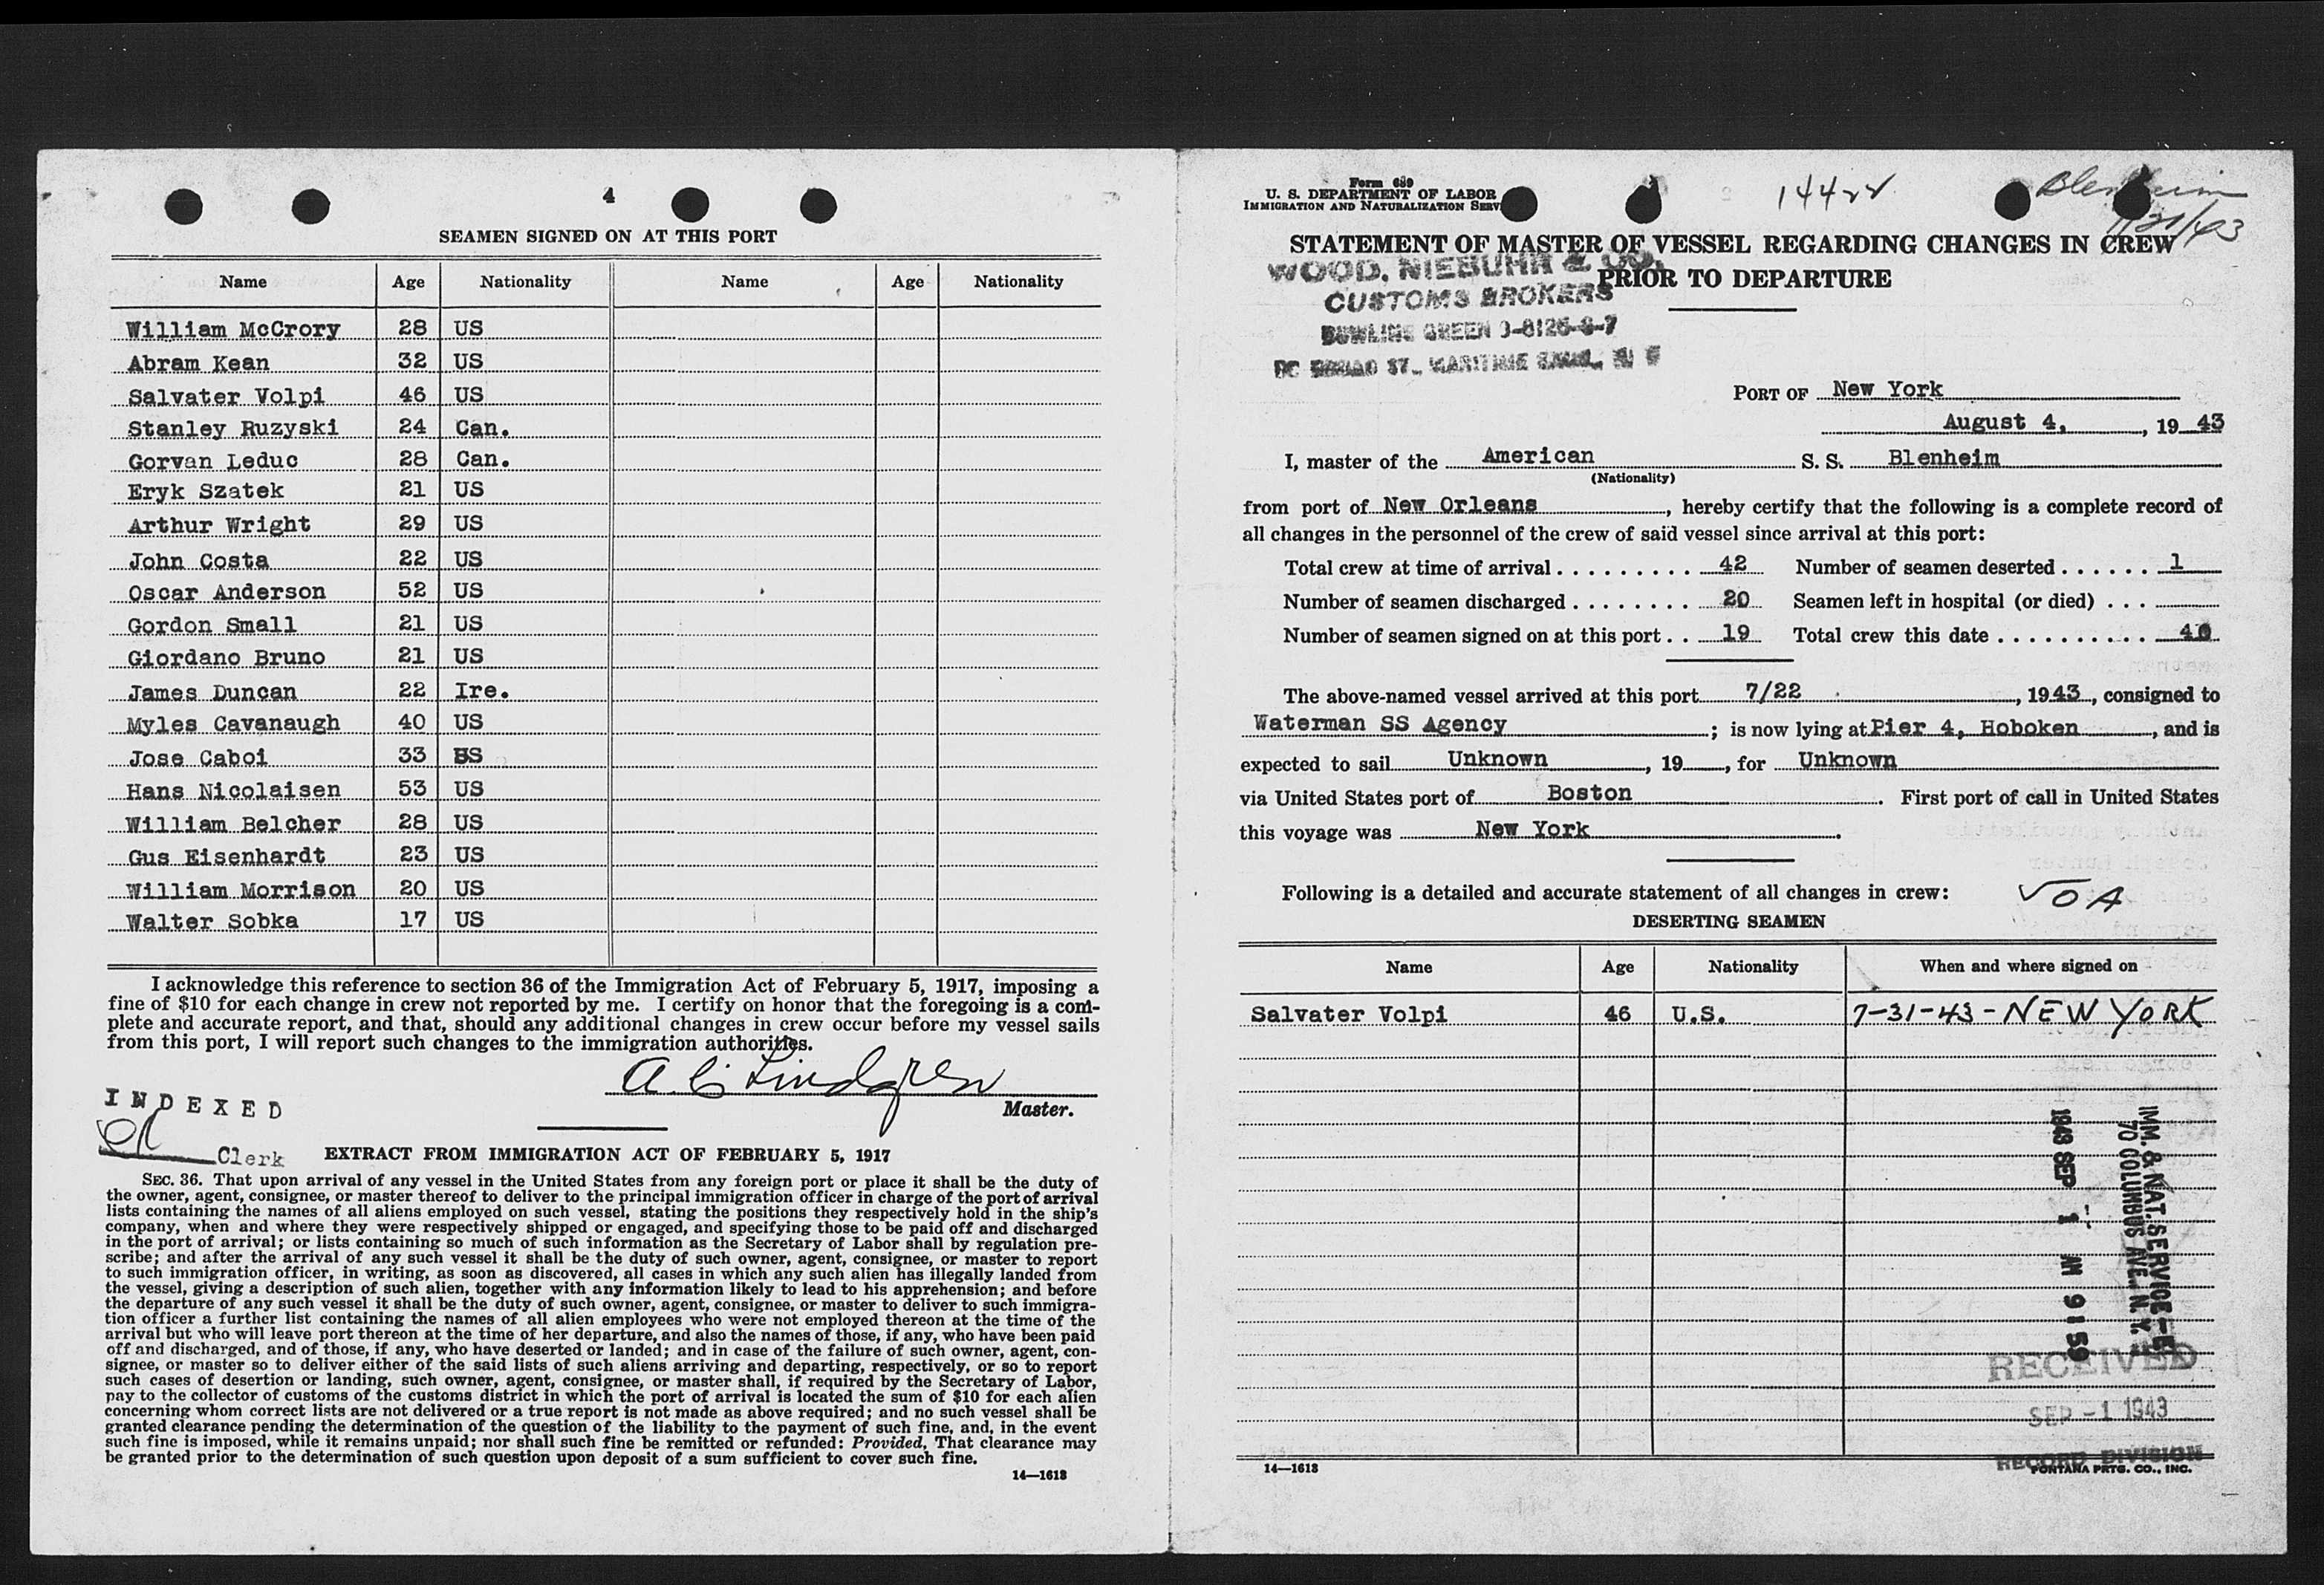 4
SEAMEN SIGNED ON AT THIS PORT
Name Age Nationality Name Age Nationality
William McCrory 28 US
Abram Kean 32 US
Salvater Volpi 46 US
Stanley Ruzyski 24 Can.
Gorvan Leduc 28 Can.
Eryk Szatek 21 US
Arthur Wright 29 US
John Costa 22 US
Oscar Anderson 52 US
Gordon Small 21 US
Giordano Bruno 21 US
James Duncan 22 Ire.
Myles Cavanaugh 40 US
Jose Caboi 33 US
Hans Nicolaisen 53 US
William Belcher 28 US
Gus Eisenhardt 23 US
William Morrison 20 US
Walter Sobka 17 US
I acknowledge this reference to section 36 of the Immigration Act of February 5, 1917, imposing a
fine of $10 for each change in crew not reported by me. I certify on honor that the foregoing is a com-
plete and accurate report, and that, should any additional changes in crew occur before my vessel sails
from this port, I will report such changes to the immigration authorities.
A C Lindgren
Master.
INDEXED
Clerk
EXTRACT FROM IMMIGRATION ACT OF FEBRUARY 5, 1917
SEC. 36. That upon arrival of any vessel in the United States from any foreign port or place it shall be the duty of
the owner, agent, consignee, or master thereof to deliver to the principal immigration officer in charge of the port of arrival
lists containing the names of all aliens employed on such vessel, stating the positions they respectively hold in the ship's
company, when and where they were respectively shipped or engaged, and specifying those to be paid off and discharged
in the port of arrival; or lists containing so much of such information as the Secretary of Labor shall by regulation pre-
scribe; and after the arrival of any such vessel it shall be the duty of such owner, agent, consignee, or master to report
to such immigration officer, in writing, as soon as discovered, all cases in which any such alien has illegally landed from
the vessel, giving a description of such alien, together with any information likely to lead to his apprehension; and before
the departure of any such vessel it shall be the duty of such owner, agent, consignee, or master to deliver to such immigra-
tion officer a further list containing the names of all alien employees who were not employed thereon at the time of the
arrival but who will leave port thereon at the time of her departure, and also the names of those, if any, who have been paid
off and discharged, and of those, if any, who have deserted or landed; and in case of the failure of such owner, agent, con-
signee, or master so to deliver either of the said lists of such aliens arriving and departing, respectively, or so to report
such cases of desertion or landing, such owner, agent, consignee, or master shall, if required by the Secretary of Labor,
pay to the collector of customs of the customs district in which the port of arrival is located the sum of $10 for each alien
concerning whom correct lists are not delivered or a true report is not made as above required; and no such vessel shall be
granted clearance pending the determination of the question of the liability to the payment of such fine, and, in the event
such fine is imposed, while it remains unpaid; nor shall such fine be remitted or refunded: Provided, That clearance may
be granted prior to the determination of such question upon deposit of a sum sufficient to cover such fine.
14—1613
Form 689
U. S. DEPARTMENT OF LABOR
IMMIGRATION AND NATURALIZATION SERV
14422
Blenheim
STATEMENT OF MASTER OF VESSEL REGARDING CHANGES IN CREW
PRIOR TO DEPARTURE
WOOD, NIEBUHR & CO.
CUSTOMS BROKERS
BOWLING GREEN 9-8126-6-7
PORT OF New York
August 4, 1943
I, master of the American S. S. Blenheim
(Nationality)
from port of New Orleans, hereby certify that the following is a complete record of
all changes in the personnel of the crew of said vessel since arrival at this port:
Total crew at time of arrival . . . . . . . . . . 42 Number of seamen deserted . . . . . . 1
Number of seamen discharged . . . . . . . . 20 Seamen left in hospital (or died) . . .
Number of seamen signed on at this port . . 19 Total crew this date . . . . . . . . . . 40
The above-named vessel arrived at this port 7/22, 1943, consigned to
Waterman SS Agency; is now lying at Pier 4, Hoboken, and is
expected to sail Unknown, 19, for Unknown
via United States port of Boston. First port of call in United States
this voyage was New York.
Following is a detailed and accurate statement of all changes in crew:
√ O A
DESERTING SEAMEN
Name Age Nationality When and where signed on
Salvater Volpi 46 U.S. 7-31-43 - NEW YORK
IMM. & NAT. SERVICE - E
70 COLUMBUS AVE. N. Y.
1943 SEP 1 AM 9 59
RECEIVED
SEP -1 1943
RECORD DIVISION
14—1613
FONTANA PRTG. CO., INC.